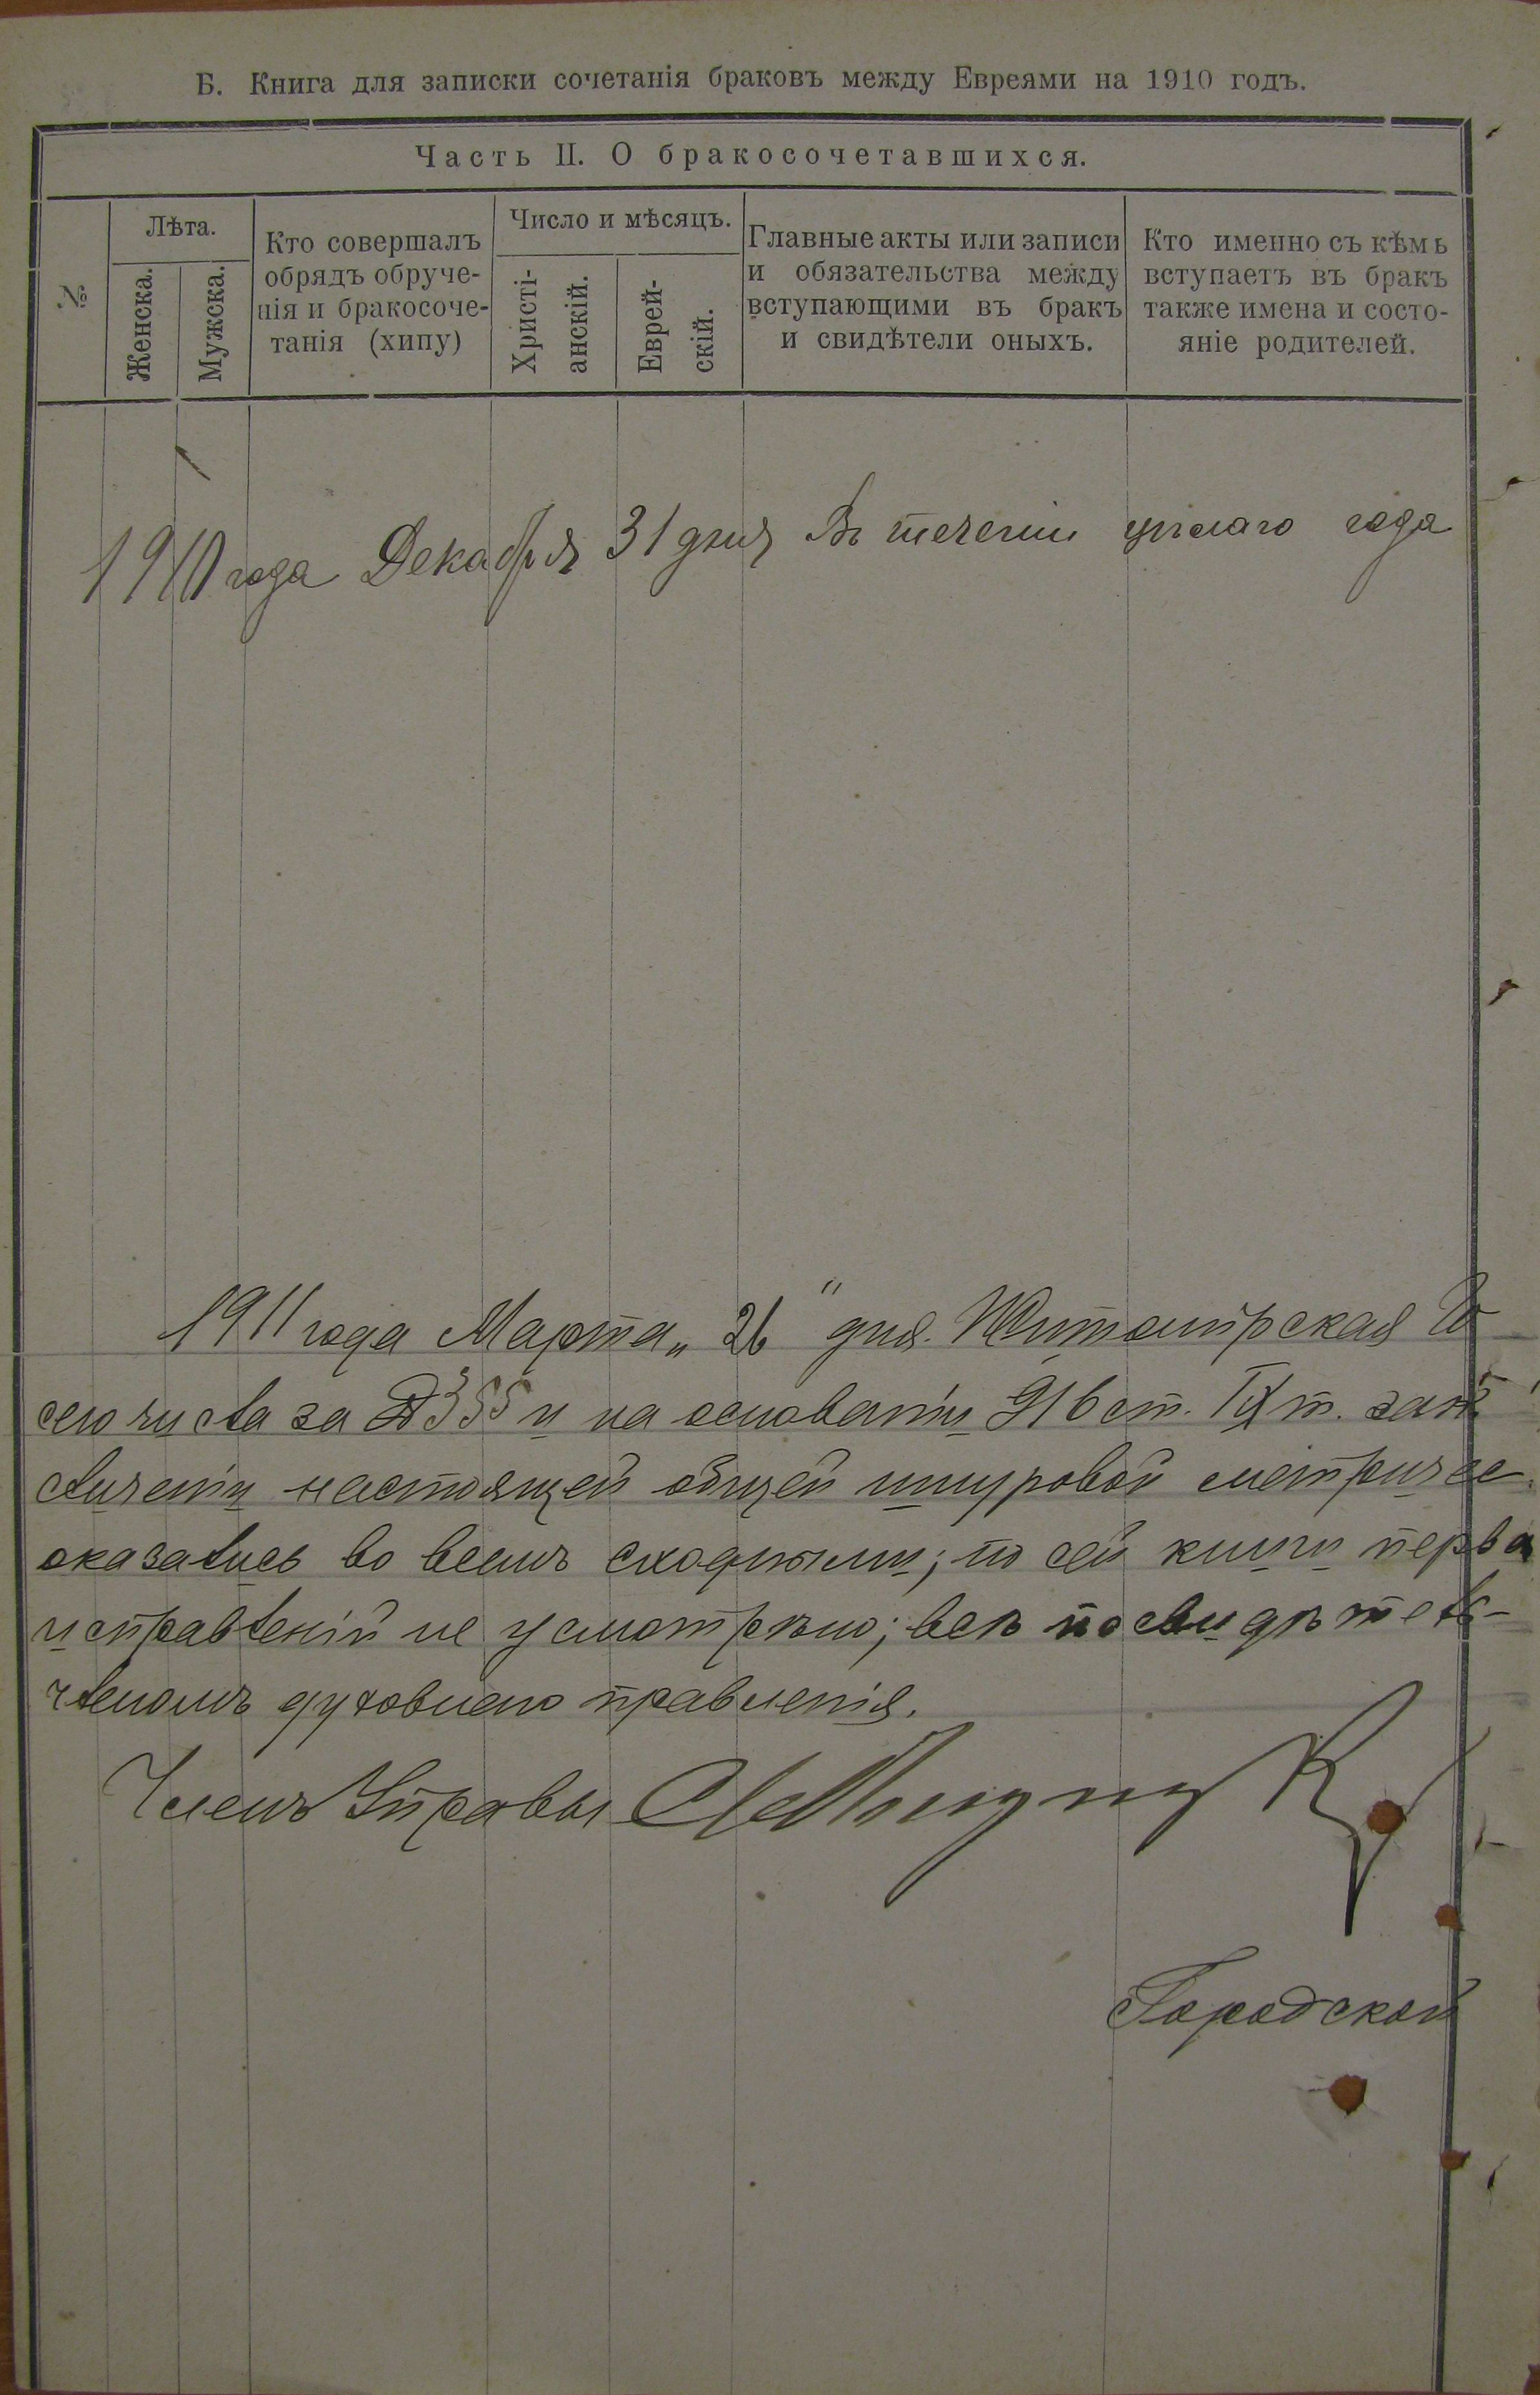 Б. Книга для записки сочетанія браковъ между Евреями на 1910 годъ.
Часть II. О бракосочетавшихся.
№
Лѣта.
Женска.
Мужска.
Кто совершалъ
обрядъ обруче-
нія и бракосоче-
танія (хипу)
Число и мѣсяцъ.
Христі-
анскій.
Еврей-
скій.
Главные акты или записи
и обязательства между
вступающими въ бракъ
и свидѣтели оныхъ.
Кто именно съ кѣмъ
вступаетъ въ бракъ
также имена и состо-
яніе родителей.
1910 года Декабря 31 дня Въ теченіи цѣлаго года
1911 года Марта „ 26 " дня. Житомирская Го
сего числа за № 355 и на основаніи 916 ст. IX т. зак
сличеніи настоящей общей шнуровой метричес
оказались во всемъ сходными; по сей книги перва
исправленій не усмотрѣно; всѣ по свидѣтель-
членомъ духовнаго правленія.
Членъ Управы
Городской